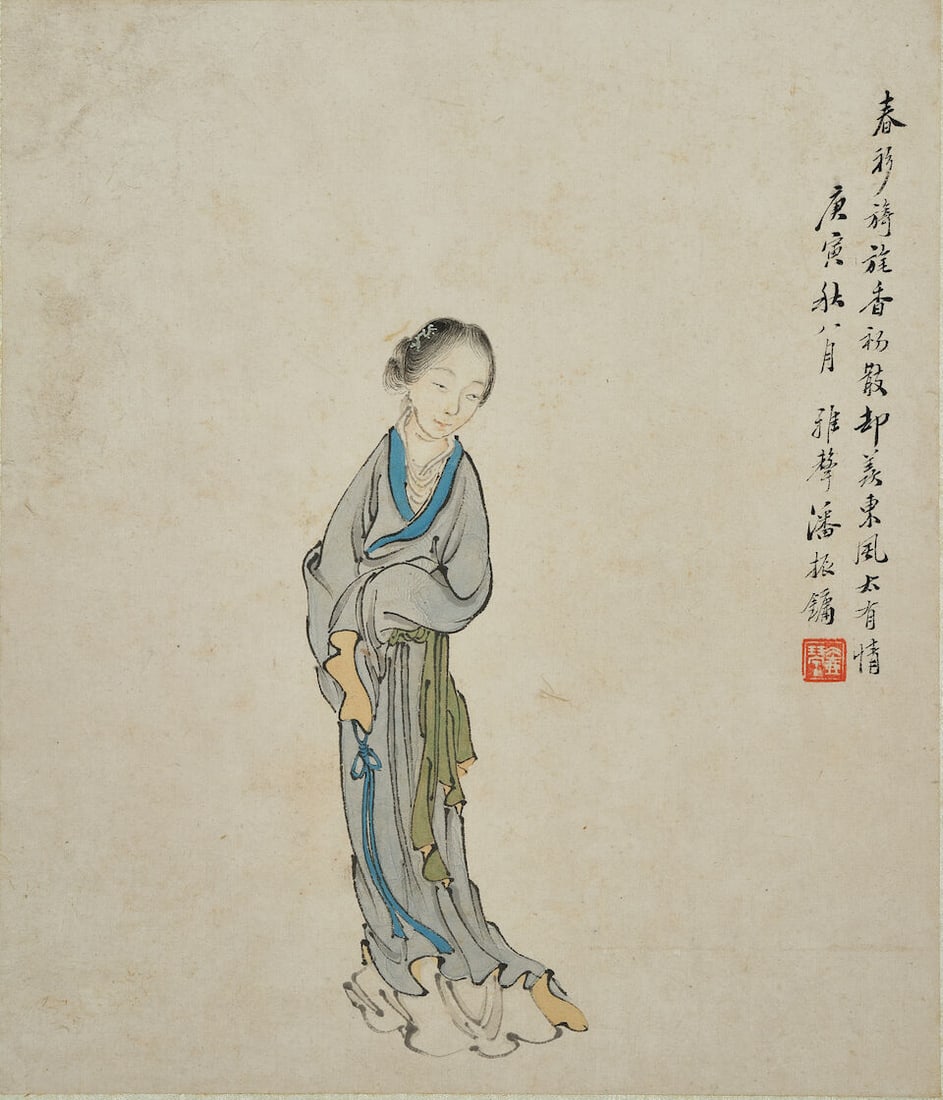 春衫旖旎香初散却羡東風太有情
庚寅秋八月 雅聲潘振鏞